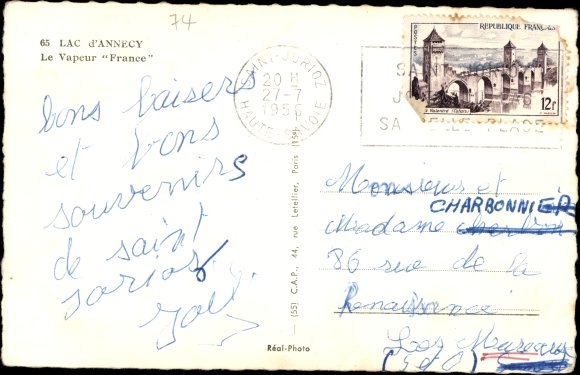 74
65 LAC d'ANNECY
Le Vapeur "France"
bons baisers
et bons
souvenirs
de saint
Jorioz
Joël
SAINT-JORIOZ
20 H
27-7
1956
HAUTE SAVOIE
REPUBLIQUE FRANÇAISE
POSTES
Valentré (Cahors)
12f
SA PLAGE
(55) C.A.P., 44, rue Letellier, Paris (15e)
Réal-Photo
Monsieur et
CHARBONNIER
Madame
86 rue de la
Renaissance
Les Mureaux
(S et O)